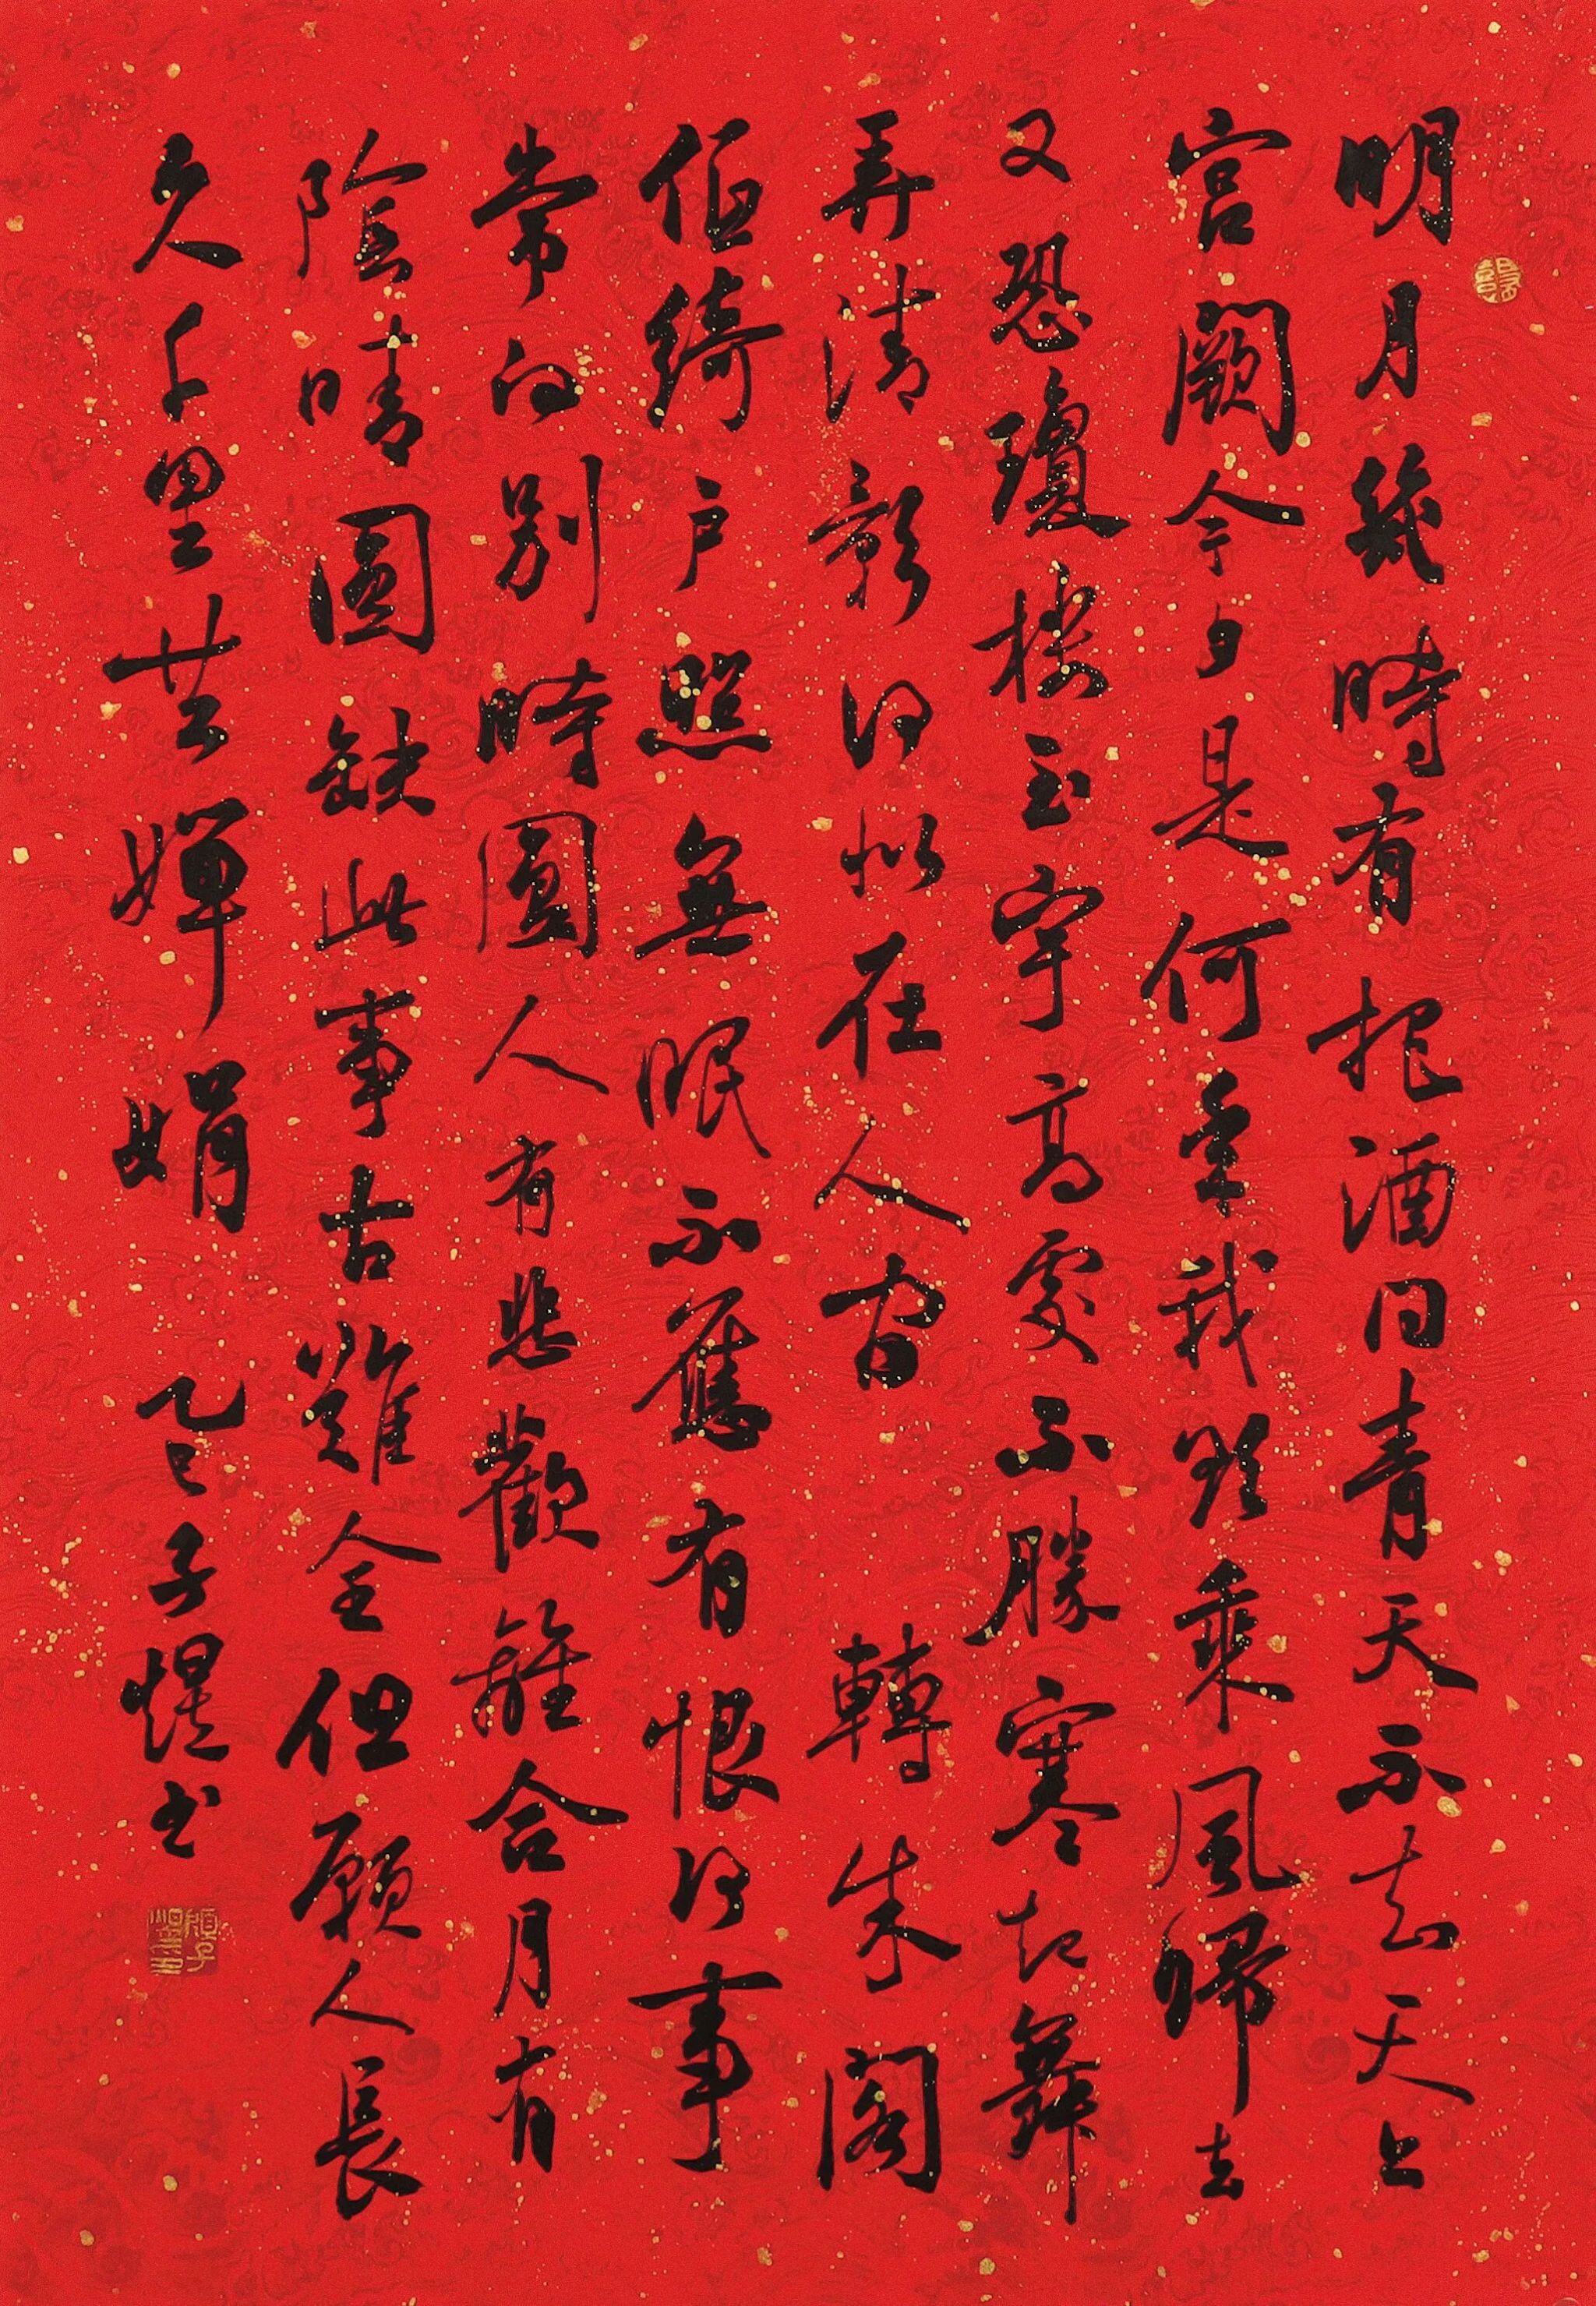 明月幾時有把酒问青天不知天上
宫闕今夕是何年我欲乘風歸去
又恐瓊樓玉宇高處不勝寒起舞
弄清影何似在人间 轉朱閣
低綺户照無眠不應有恨何事
常向别時圓人有悲歡離合月有
陰晴圓缺此事古難全但願人長
久千里共嬋娟 乙巳子煜书